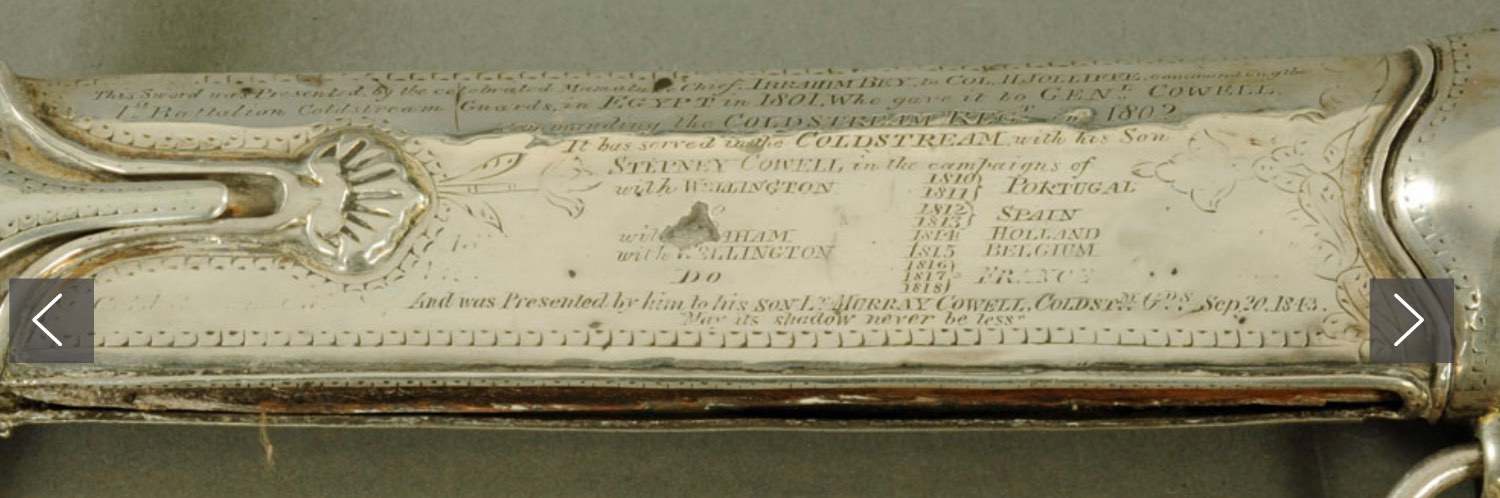 This Sword was Presented by the celebrated Mamaluke Chief, IBRAHIM BEY, to COL. H. JOLLIFFE, commanding the
1st Battalion Coldstream Guards, in EGYPT in 1801, Who gave it to GENL COWELL,
commanding the COLDSTREAM REGT in 1802
It has served in the COLDSTREAM with his Son
STEPNEY COWELL in the campaigns of
with WELLINGTON 1810 1811 } PORTUGAL
1812 1813 } SPAIN
with 1814 HOLLAND
with WELLINGTON 1815 BELGIUM
DO 1816 1817 1818 } FRANCE
And was Presented by him to his SON LT MURRAY COWELL, COLDSTM GDS Sep. 20. 1843.
"May its shadow never be less"